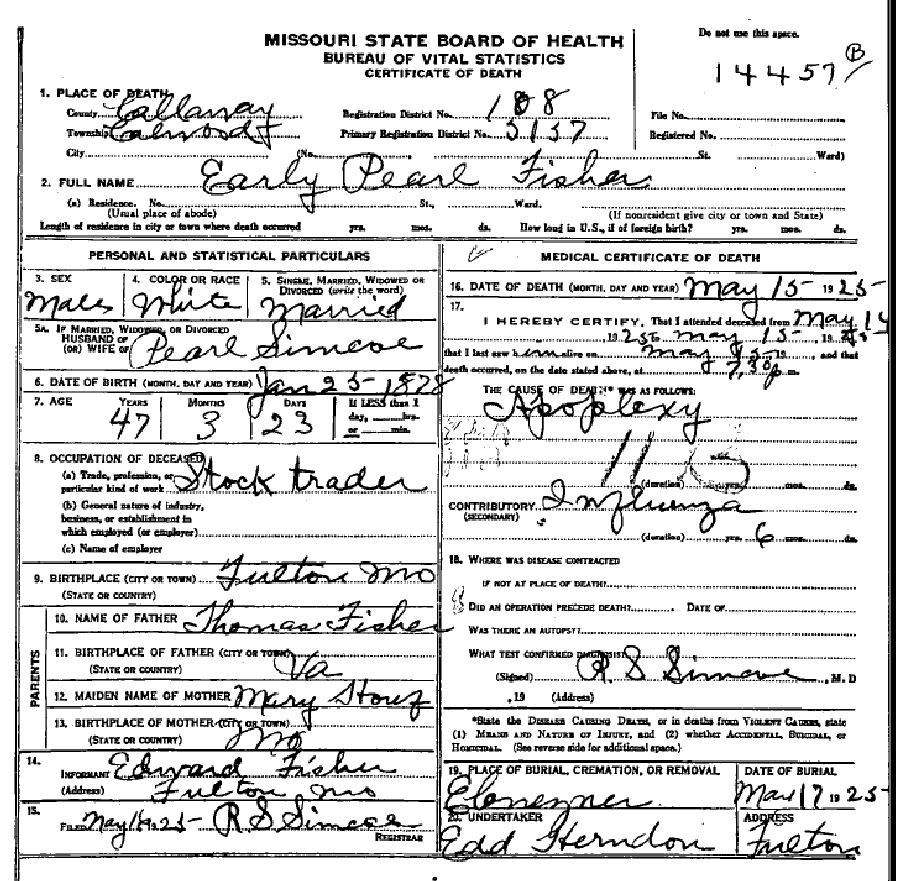 MISSOURI STATE BOARD OF HEALTH
BUREAU OF VITAL STATISTICS
CERTIFICATE OF DEATH
Do not use this space.
14457 B
1. PLACE OF DEATH
County Callaway
Registration District No. 188
File No.
Township
Primary Registration District No. 5137
Registered No.
City (No. St. Ward)
2. FULL NAME Early Pearl Fisher
(a) Residence. No. St., Ward.
(Usual place of abode) (If nonresident give city or town and State)
Length of residence in city or town where death occurred yrs. mos. ds. How long in U.S., if of foreign birth? yrs. mos. ds.
PERSONAL AND STATISTICAL PARTICULARS
3. SEX 4. COLOR OR RACE 5. SINGLE, MARRIED, WIDOWED OR DIVORCED (write the word)
Male White Married
5A. IF MARRIED, WIDOWED, OR DIVORCED
HUSBAND OF
(OR) WIFE OF Pearl Simcoe
6. DATE OF BIRTH (MONTH, DAY AND YEAR) Jan 25-1878
7. AGE YEARS MONTHS DAYS If LESS than 1 day, hrs. or min.
47 3 23
8. OCCUPATION OF DECEASED
(a) Trade, profession, or
particular kind of work Stock trader
(b) General nature of industry,
business, or establishment in
which employed (or employer)
(c) Name of employer
9. BIRTHPLACE (CITY OR TOWN) Fulton Mo
(STATE OR COUNTRY)
PARENTS
10. NAME OF FATHER Thomas Fisher
11. BIRTHPLACE OF FATHER (CITY OR TOWN)
(STATE OR COUNTRY) Va
12. MAIDEN NAME OF MOTHER Mary
13. BIRTHPLACE OF MOTHER (CITY OR TOWN)
(STATE OR COUNTRY) Mo
14. INFORMANT Edward Fisher
(Address) Fulton Mo
15. FILED May 1925 R S Simcoe
REGISTRAR
MEDICAL CERTIFICATE OF DEATH
16. DATE OF DEATH (MONTH, DAY AND YEAR) May 15- 1925-
17.
I HEREBY CERTIFY, That I attended deceased from May 14
1925 to May 15- 1925
that I last saw him alive on May 15 19 and that
death occurred, on the date stated above, at 7,30 p m.
THE CAUSE OF DEATH* WAS AS FOLLOWS:
Apoplexy
(duration) yrs. mos. ds.
CONTRIBUTORY Influenza
(SECONDARY)
(duration) yrs. 6 mos. ds.
18. WHERE WAS DISEASE CONTRACTED
IF NOT AT PLACE OF DEATH?
DID AN OPERATION PRECEDE DEATH? DATE OF
WAS THERE AN AUTOPSY?
WHAT TEST CONFIRMED DIAGNOSIS?
(Signed) R S Simcoe, M. D
, 19 (Address)
*State the DISEASE CAUSING DEATH, or in deaths from VIOLENT CAUSES, state
(1) MEANS AND NATURE OF INJURY, and (2) whether ACCIDENTAL, SUICIDAL, or
HOMICIDAL. (See reverse side for additional space.)
19. PLACE OF BURIAL, CREMATION, OR REMOVAL DATE OF BURIAL
Ebenezner May 17 1925-
20. UNDERTAKER ADDRESS
Edd Herndon Fulton